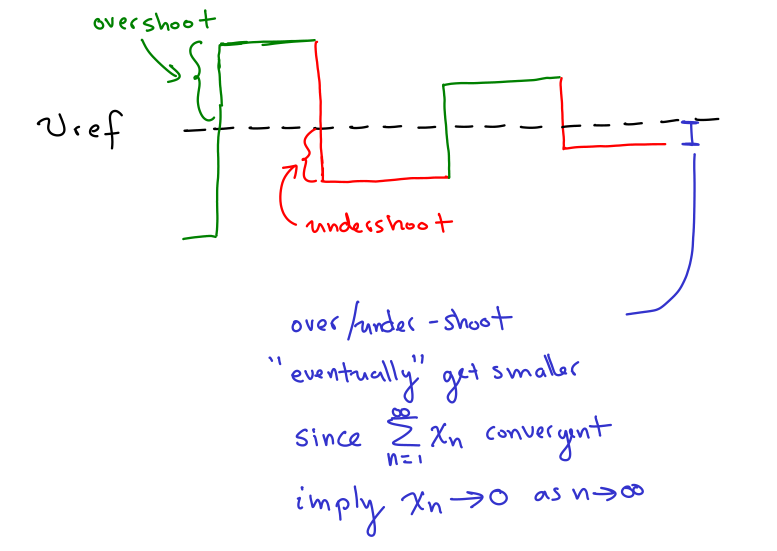 overshoot
Vref
undershoot
over/under-shoot
"eventually" get smaller
since ∑_{n=1}^{∞} xn convergent
imply xn → 0 as n→∞